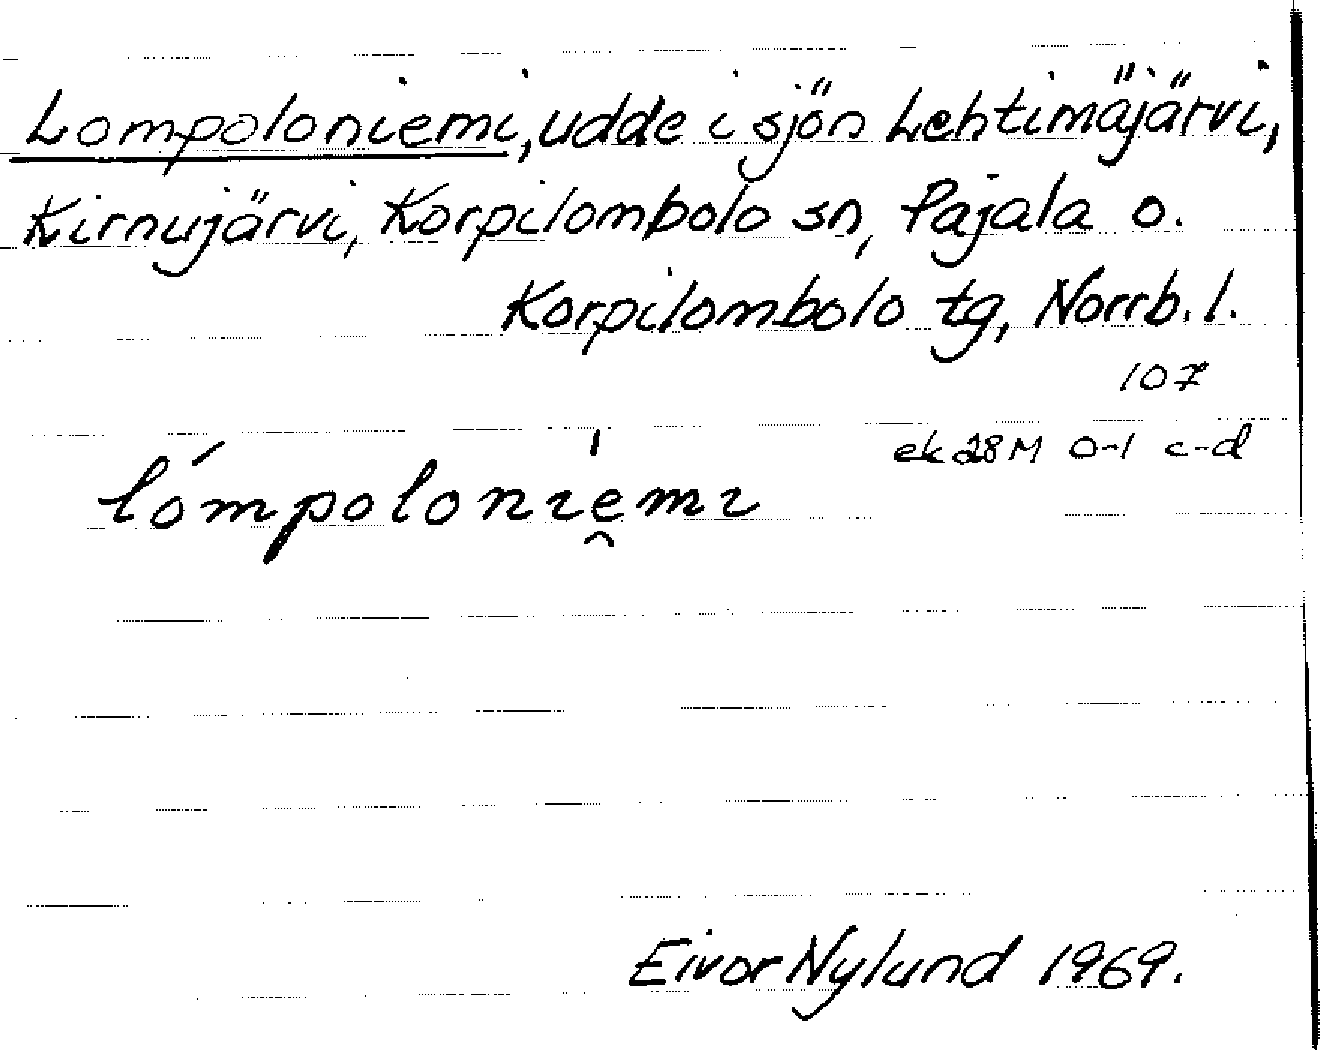 Lompoloniemi, udde i sjön Lehtimäjärvi,
Kirnujärvi, Korpilombolo sn, Pajala o.
Korpilombolo tg, Norrb. l.
107
ek 28M 0-1 c-d
lómpolonıe̯mı
Eivor Nylund 1969.